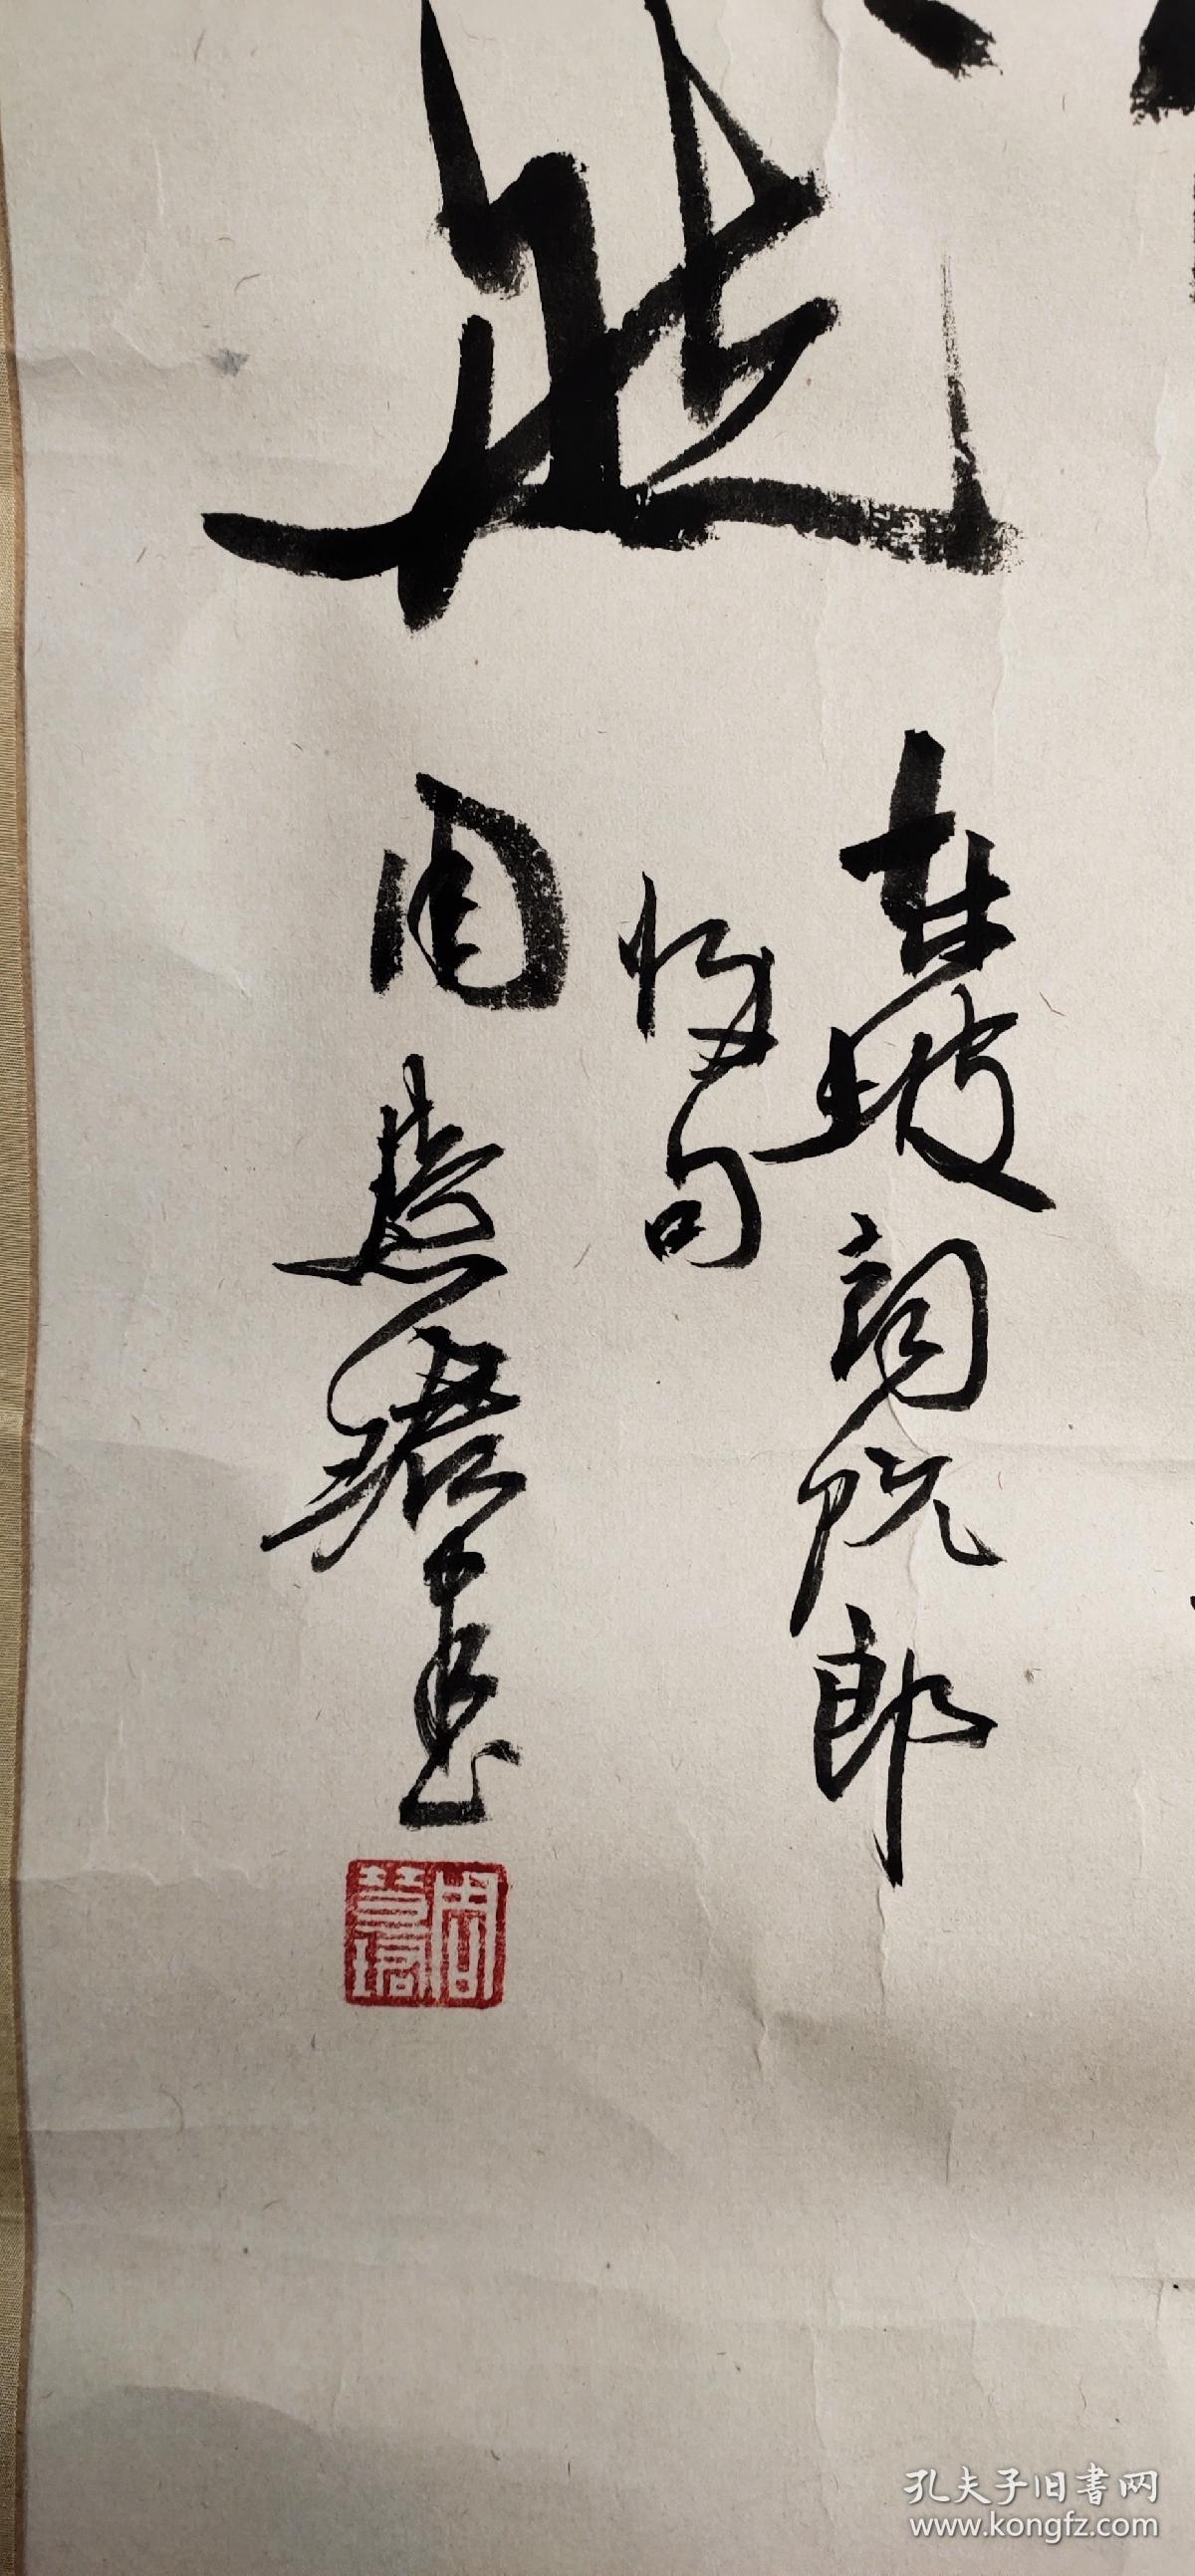 然
東坡詞阮郎
歸句
周慧珺書
周慧珺
孔夫子旧書网
www.kongfz.com